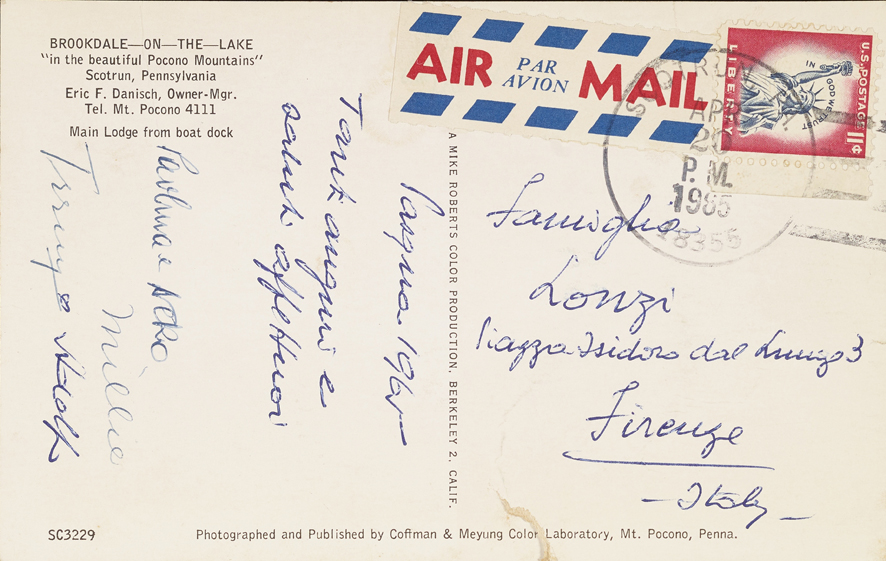 BROOKDALE—ON—THE—LAKE
"in the beautiful Pocono Mountains"
Scotrun, Pennsylvania
Eric F. Danisch, Owner-Mgr.
Tel. Mt. Pocono 4111
Main Lodge from boat dock
Pasqua 1965
Tanti auguri e
saluti affettuosi
Millie
Adolf
SC3229
A MIKE ROBERTS COLOR PRODUCTION, BERKELEY 2, CALIF.
Photographed and Published by Coffman & Meyung Color Laboratory, Mt. Pocono, Penna.
AIR PAR AVION MAIL
U.S. POSTAGE
LIBERTY
IN GOD WE TRUST
11¢
SCOTRUN
APR
20
P.M.
1965
18355
Famiglia
Lonzi
Piazza Isidoro del Lungo 3
Firenze
—Italy—